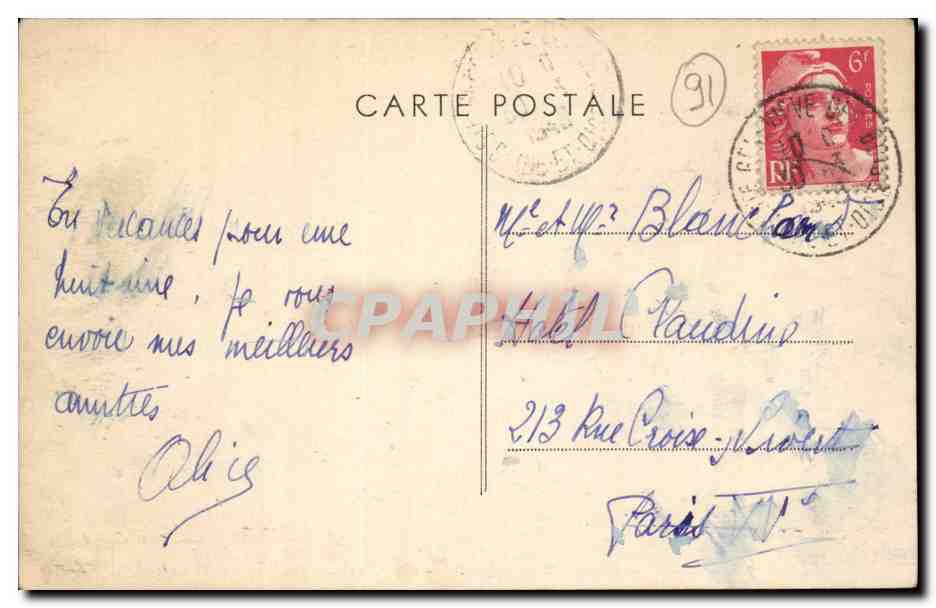 CARTE POSTALE
91
6f
POSTES
RF
En vacances pour une
huitaine, je vous
envoie mes meilleurs
amitiés
Alice
Me et Mr Blanchard
Hotel Claudino
213 Rue Croix-Nivert
Paris XVs
CPAPHIL
ET-OISE